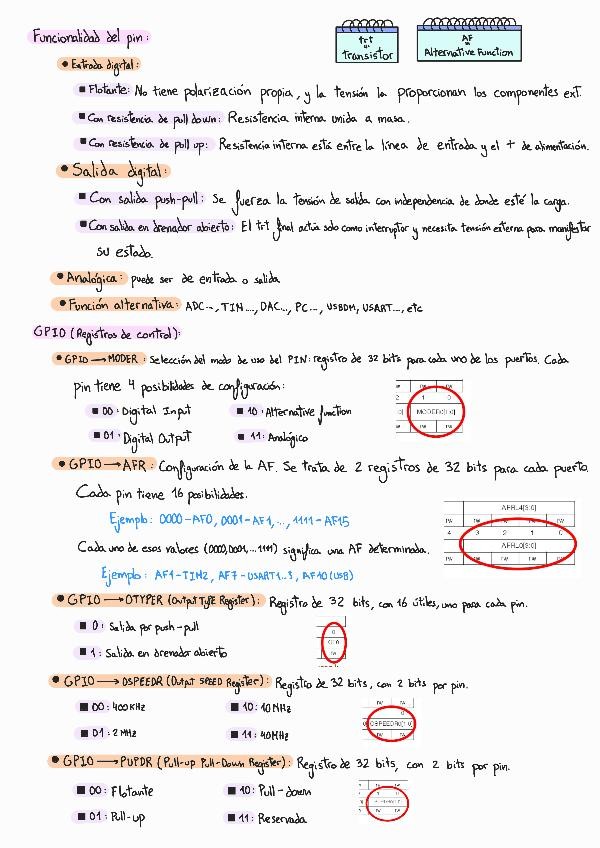 Funcionalidad del pin:
trt
"
transistor
AF
"
Alternative Function
• Entrada digital:
■ Flotante: No tiene polarización propia, y la tensión la proporcionan los componentes ext.
■ Con resistencia de pull down: Resistencia interna unida a masa.
■ Con resistencia de pull up: Resistencia interna está entre la línea de entrada y el + de alimentación.
• Salida digital:
■ Con salida push-pull: Se fuerza la tensión de salida con independencia de donde esté la carga.
■ Con salida en drenador abierto: El trt final actúa solo como interruptor y necesita tensión externa para manifestar
su estado.
• Analógica: puede ser de entrada o salida
• Función alternativa: ADC..., TIN..., DAC..., PC..., USBDM, USART..., etc
GPIO (Registros de control):
• GPIO → MODER: Selección del modo de uso del PIN: registro de 32 bits para cada uno de los puertos. Cada
pin tiene 4 posibilidades de configuración:
■ 00: Digital Input ■ 10: Alternative function
■ 01: Digital Output ■ 11: Analógico
rw rw
2 1 0
MODER0[1:0]
rw rw
• GPIO → AFR: Configuración de la AF. Se trata de 2 registros de 32 bits para cada puerto.
Cada pin tiene 16 posibilidades.
Ejemplo: 0000-AF0, 0001-AF1, ..., 1111-AF15
Cada uno de esos valores (0000,0001,...1111) significa una AF determinada.
Ejemplo: AF1-TIM2, AF7-USART1..3, AF10(USB)
AFRL4[3:0]
rw rw rw rw rw
4 3 2 1 0
AFRL0[3:0]
rw rw rw rw rw
• GPIO → OTYPER (Output TYPE Register): Registro de 32 bits, con 16 útiles, uno para cada pin.
■ 0: Salida por push-pull
■ 1: Salida en drenador abierto
0
rw
• GPIO → OSPEEDR (Output SPEED Register): Registro de 32 bits, con 2 bits por pin.
■ 00: 400KHz ■ 10: 10MHz
■ 01: 2MHz ■ 11: 40MHz
rw rw
0
OSPEEDR0[1:0]
rw rw
• GPIO → PUPDR (Pull-up Pull-Down Register): Registro de 32 bits, con 2 bits por pin.
■ 00: Flotante ■ 10: Pull-down
■ 01: Pull-up ■ 11: Reservada
rw rw
rw rw